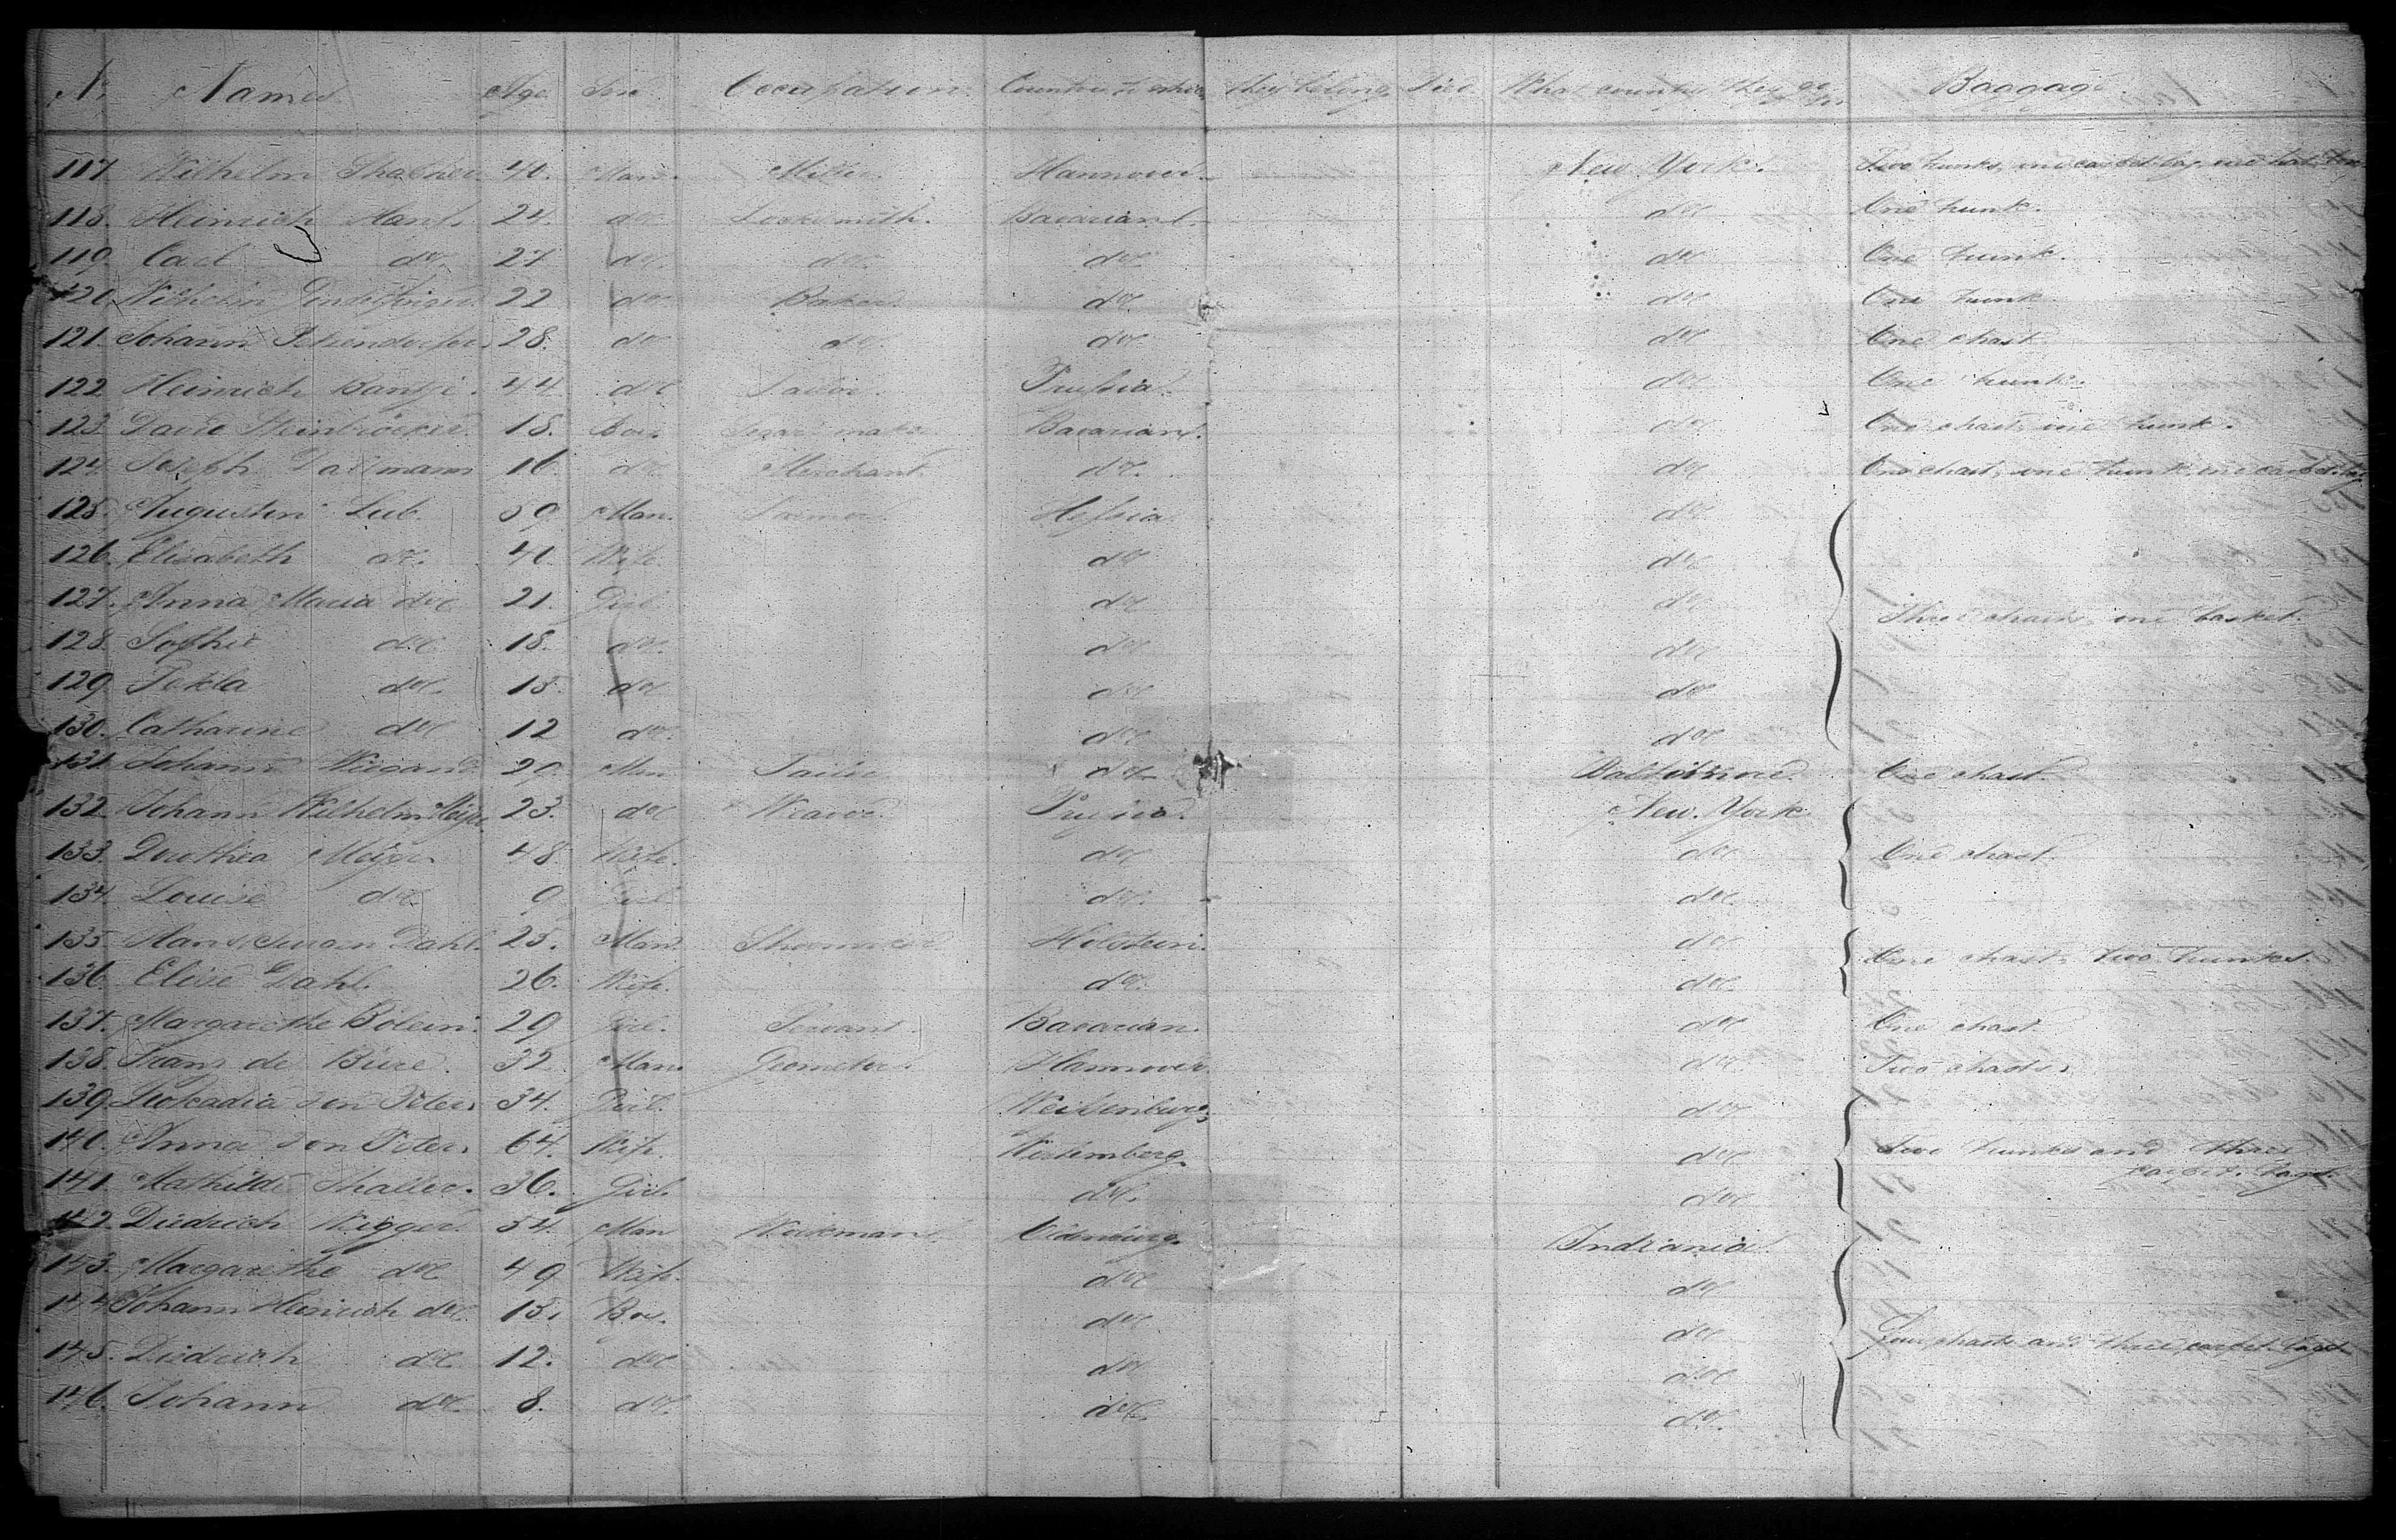 No Names Age Sex Occupation Country to which they belong Died What country they go to Baggage.
117. Wilhelm 40. Man. Miller Hannover. New York. Two trunks, one carpet bag, one hat box
118. Heinrich Hanf. 24. do Locksmith. Bavarian. do One trunk.
119. Carl do. 27 do. do. do. do One trunk.
120. Wilhelm 22 do Baker. do. do One trunk.
121. Johann 28. do do. do. do One chast.
122 Heinrich Bantje. 44. do Tailor. Prussia. do One trunk.
123. David Steinbröcker. 18. Boy. Segar maker Bavarian. do One chast, one trunk.
124. Joseph Dallmann 16 do. Merchant. do. do One chast, one trunk, one carpet bag
125. Augustin Lub. 59 Man. Farmer. Hessia do
126. Elisabeth do. 41. Wife. do do
127. Anna Maria do 21. Girl. do do Three chasts, one basket.
128. Sophie do 18. do. do do
129. Tekla do. 15. do do do
130. Catharine do 12 do. do do
131. Johann Wiegand 20. Man Tailor do Baltimore. One chast.
132. Johann Wilhelm Meijer 23. do Weaver. Prussia. New York
133. Dorothea Meijer 48 Wife. do do One chast.
134. Louise do 9 Girl do. do
135. Hans Dahl. 25. Man. Holstein. do One chast, two trunkes.
136. Elise Dahl. 26. Wife. do. do
137. Margarethe Bölein. 29 Girl. Servant. Bavarian. do One chast.
138. Franz de Bure. 32 Man. Geometer. Hannover. do Two chasts.
139. Leokadia von Peters 34. Girl. do
140. Anna von Peters 64. Wife. Würtemberg. do Two trunks and three carpet bags.
141. Mathilde Shaller. 36. Girl. do. do
142. Diedrich Wigger. 54. Man Workman. Oldenburg. Indiania.
143. Margarethe do 49 Wife. do do
144. Johann Heinrich do. 15. Boy. do do Four chasts and three carpet bags.
145. Diedrich do 12. do do do
146. Johann do. 8. do. do. do.